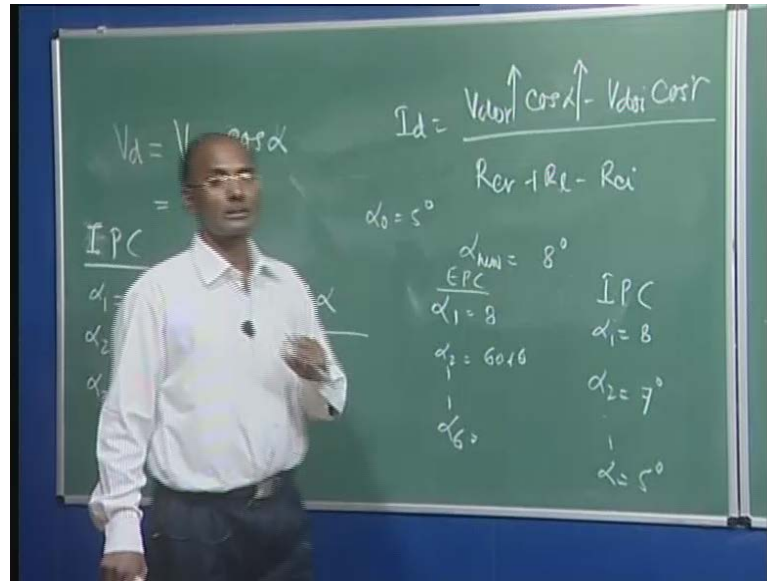 Vd = V cosα
=
IPC
α1 =
α2
α
α
Id = Vdor↑ cosα↑ - Vdoi Cosγ
Rcr + Rl - Rci
α0 = 5°
αnew = 8°
EPC
α1 = 8
α2 = 60+6
α6 =
IPC
α1 = 8
α2 = 7°
α = 5°